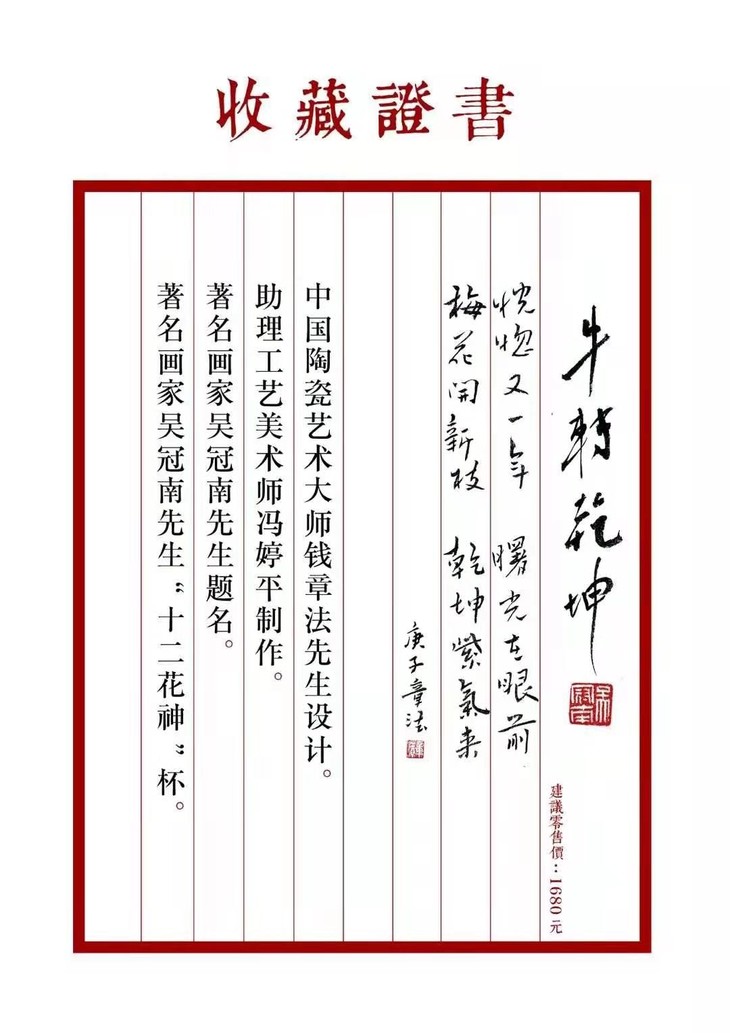 收藏證書
牛轉乾坤
吴冠南
建議零售價：1680元
恍惚又一年 曙光在眼前
梅花開新枝 乾坤紫氣来
庚子章法
中国陶瓷艺术大师钱章法先生设计。
助理工艺美术师冯婷平制作。
著名画家吴冠南先生题名。
著名画家吴冠南先生“十二花神”杯。